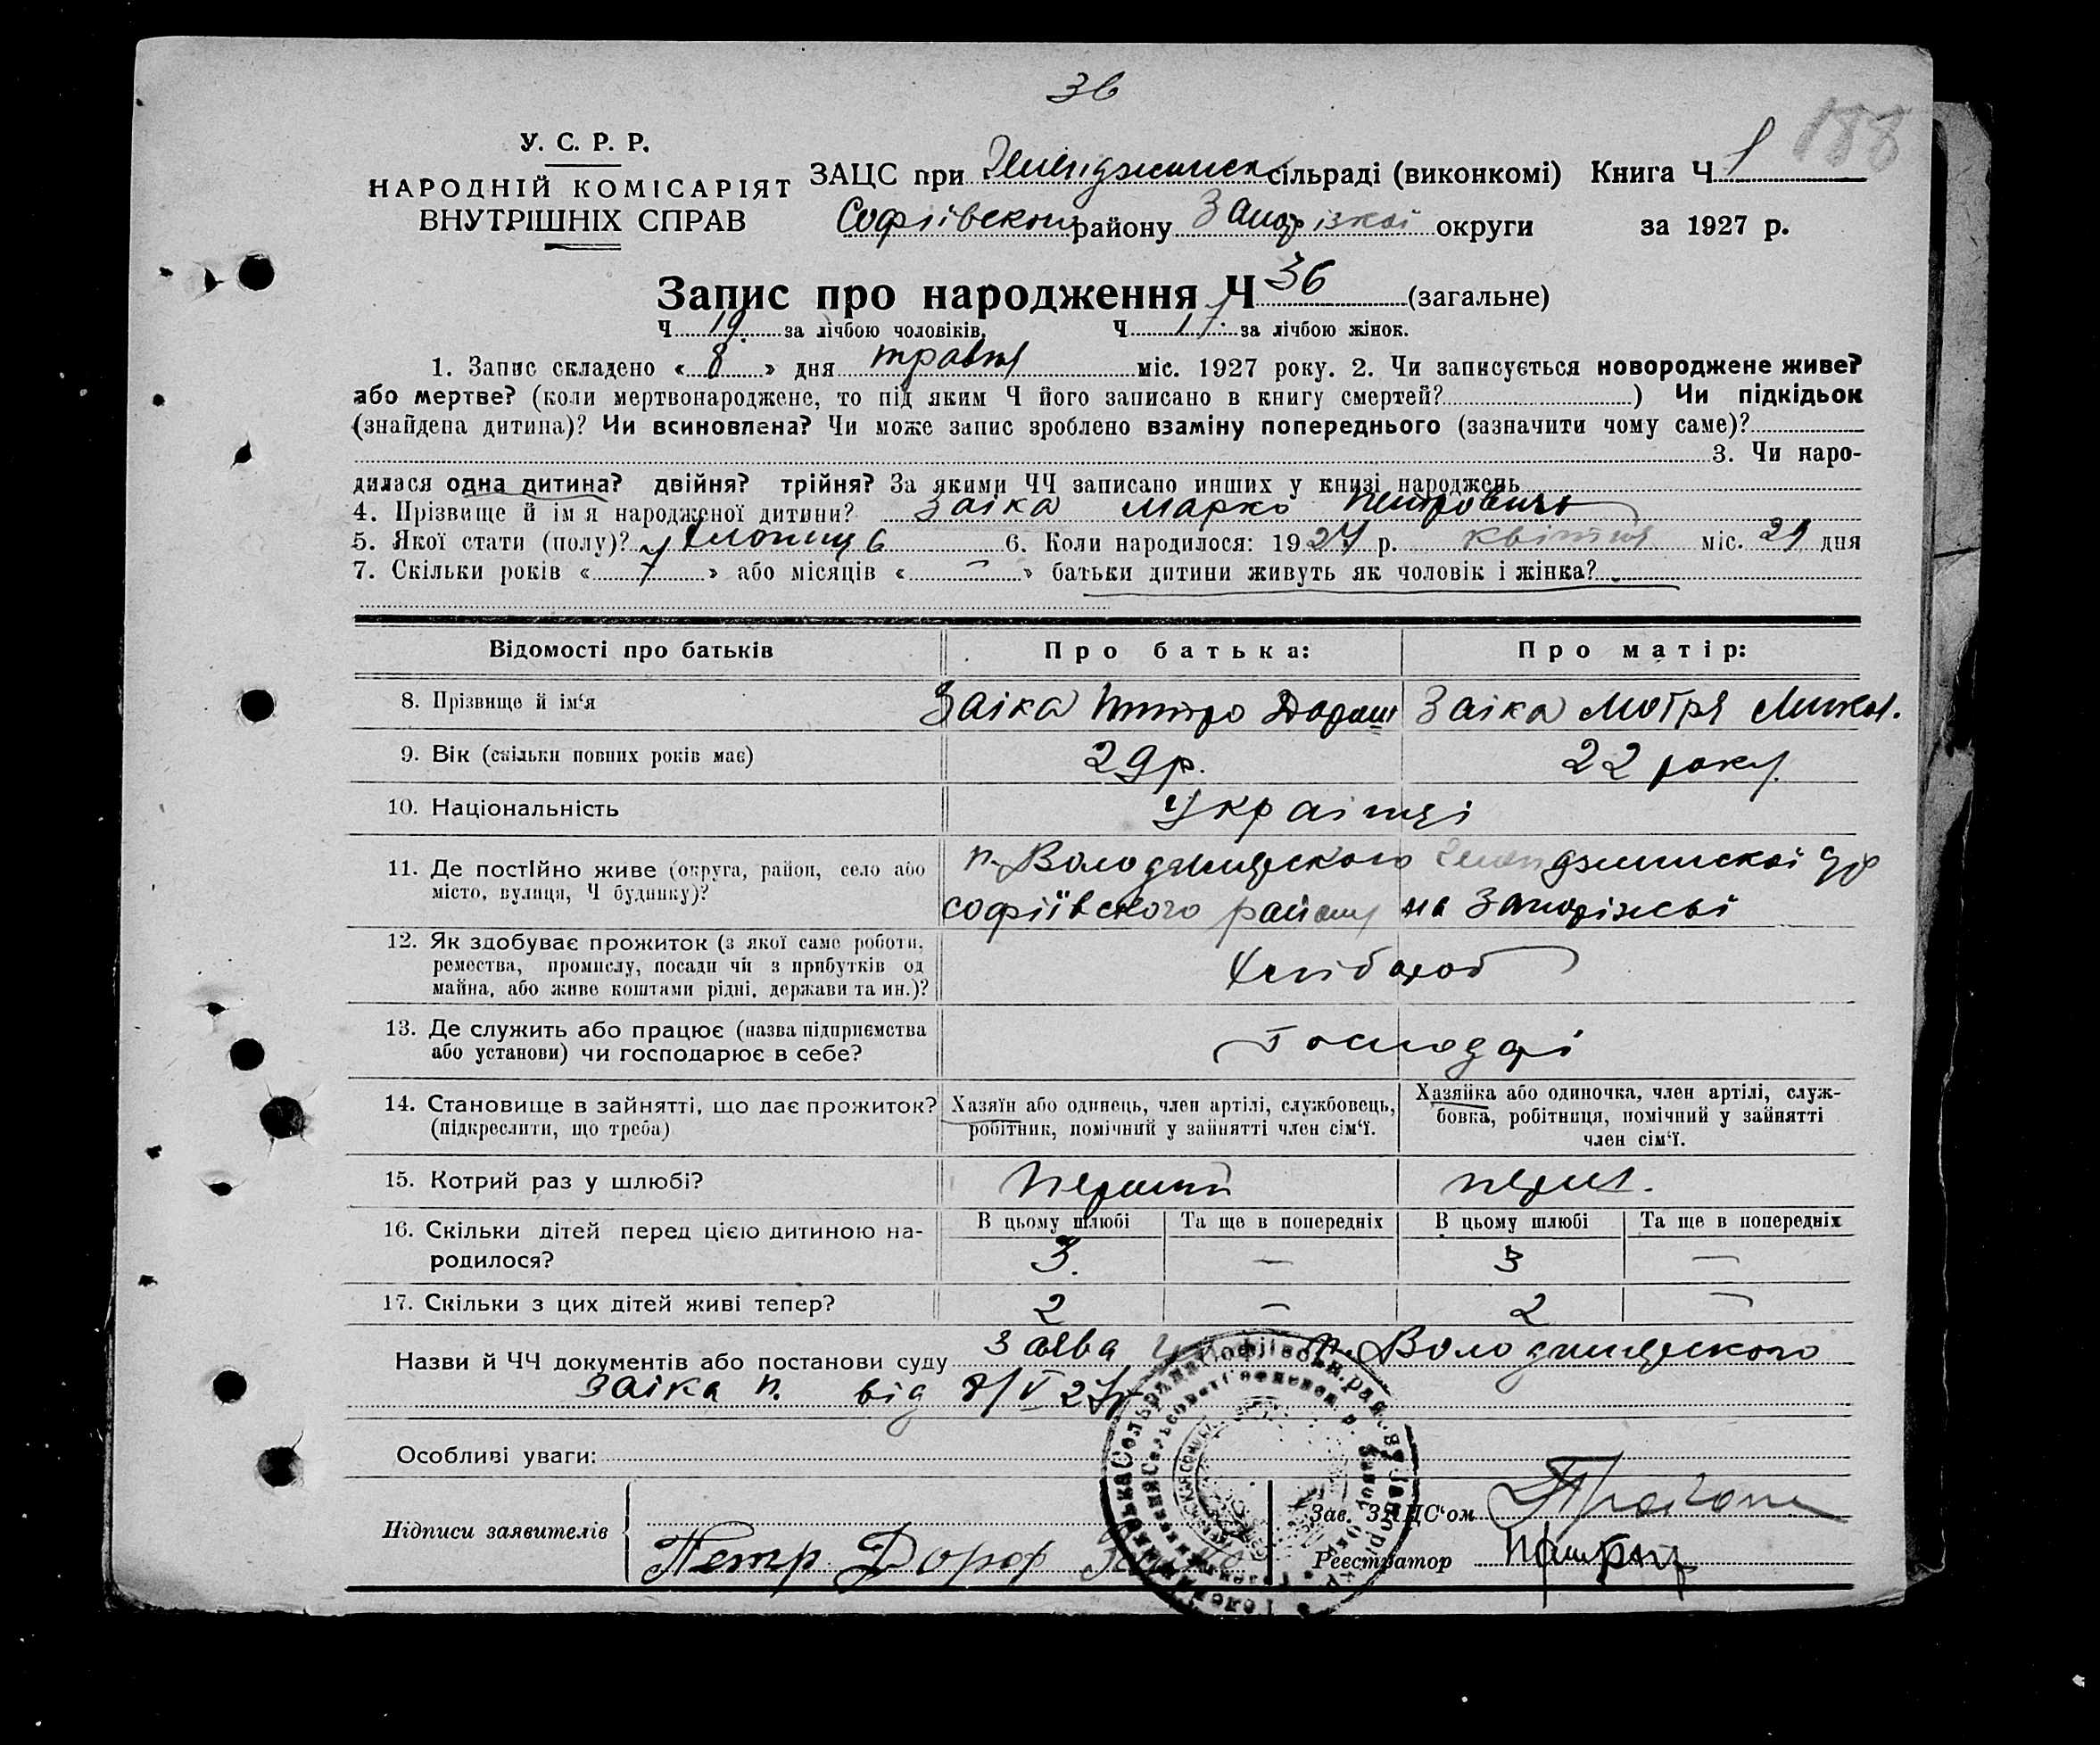 36
188
У. С. Р. Р.
НАРОДНІЙ КОМІСАРІЯТ
ВНУТРІШНІХ СПРАВ
ЗАЦС при сільраді (виконкомі) Книга Ч 1
Софіївськ району Запорізкої округи за 1927 р.
Запис про народження Ч 36 (загальне)
Ч 19 за лічбою чоловіків, Ч 17 за лічбою жінок.
1. Запис складено « 8 » дня травня міс. 1927 року. 2. Чи записується новороджене живе?
або мертве? (коли мертвонароджене, то під яким Ч його записано в книгу смертей? ) Чи підкідьок
(знайдена дитина)? Чи всиновлена? Чи може запис зроблено взаміну попереднього (зазначити чому саме)?
3. Чи наро-
дилася одна дитина? двійня? трійня? За якими ЧЧ записано инших у книзі народжень
4. Прізвище й ім я народженої дитини? Заіка Марко Петрович
5. Якої стати (полу)? 6. Коли народилося: 1927 р. квітня міс. 29 дня
7. Скільки років « 7 » або місяців « – » батьки дитини живуть як чоловік і жінка?
Відомості про батьків Про батька: Про матір:
8. Прізвище й ім‘я Заіка Петро Дороф Заіка Мотря Микол.
9. Вік (скільки повних років має) 29 р. 22 року
10. Національність Украінці
11. Де постійно живе (округа, район, село або
місто, вулиця, Ч будинку)?
п. Володимирского
софіївского району на Запоріжсьі
12. Як здобуває прожиток (з якої саме роботи,
ремества, промислу, посади чи з прибутків од
майна, або живе коштами рідні, держави та ин.)?
Хлібороб
13. Де служить або працює (назва підприємства
або установи) чи господарює в себе?
Господарі
14. Становище в зайнятті, що дає прожиток?
(підкреслити, що треба)
Хазяїн або одинець, член артілі, службовець,
робітник, помічний у зайнятті член сім‘ї.
Хазяйка або одиночка, член артілі, служ-
бовка, робітниця, помічний у зайнятті
член сім‘ї.
15. Котрий раз у шлюбі? Перший перш.
16. Скільки дітей перед цією дитиною на-
родилося?
В цьому шлюбі Та ще в попередніх В цьому шлюбі Та ще в попередніх
3. – 3 –
17. Скільки з цих дітей живі тепер? 2 – 2 –
Назви й ЧЧ документів або постанови суду заява п. Володимирского
Заіка п. від 8/V 27 р
Особливі уваги:
Підписи заявителів
Петр Дороф
Зав. ЗАЦС‘ом
Реєстратор